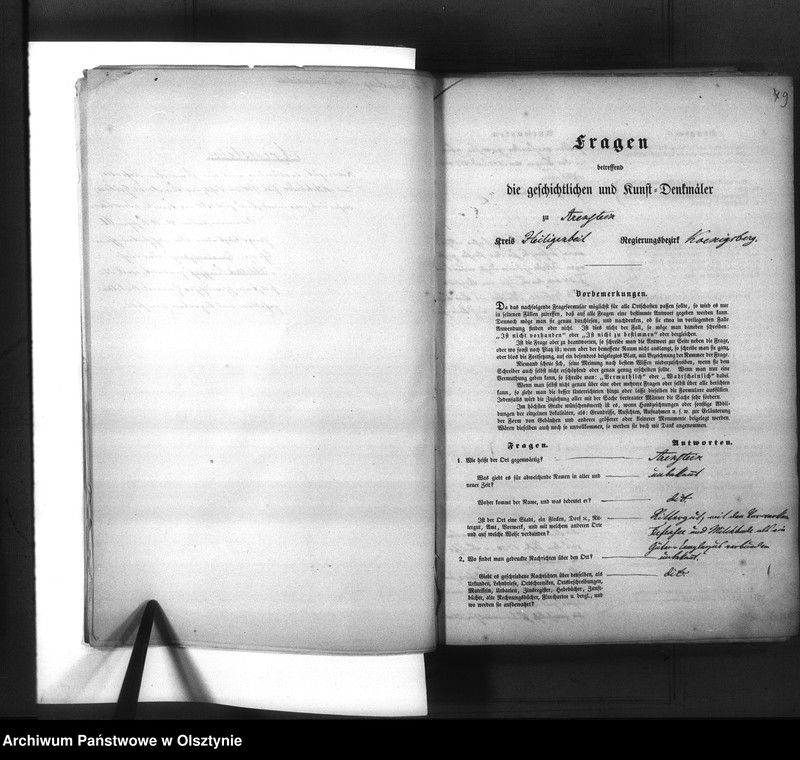 49
Fragen
betreffend
die geschichtlichen und Kunst-Denkmäler
zu Arenstein
Kreis Heiligenbeil Regierungsbezirk Koenigsberg.
Vorbemerkungen.
Da das nachfolgende Frageformular möglichst für alle Ortschaften passen sollte, so wird es nur
in seltenen Fällen zutreffen, daß auf alle Fragen eine bestimmte Antwort gegeben werden kann.
Dennoch möge man sie genau durchlesen, und nachdenken, ob sie etwa im vorliegenden Falle
Anwendung finden oder nicht. Ist dies nicht der Fall, so möge man daneben schreiben:
„Ist nicht vorhanden" oder „Ist nicht zu bestimmen" oder dergleichen.
Ist die Frage aber zu beantworten, so schreibe man die Antwort zur Seite neben die Frage,
oder wo sonst noch Platz ist; wenn aber der bemessene Raum nicht auslangt, so schreibe man sie ganz
oder blos die Fortsetzung, auf ein besonderes beigelegtes Blatt, mit Bezeichnung der Nummer der Frage.
Niemand scheue sich, seine Meinung nach bestem Wissen niederzuschreiben, wenn sie dem
Schreiber auch selbst nicht erschöpfend oder genau genug erscheinen sollte. Wenn man nur eine
Vermuthung geben kann, so schreibe man: „Vermuthlich" oder „Wahrscheinlich" dabei.
Wenn man selbst nicht genau über eine oder mehrere Fragen oder selbst über alle berichten
kann, so ziehe man die besser Unterrichteten hinzu oder lasse dieselben die Formulare ausfüllen.
Jedenfalls wird die Zuziehung aller mit der Sache vertrauter Männer die Sache sehr fördern.
Im höchsten Grade wünschenswerth ist es, wenn Handzeichnungen oder sonstige Abbil-
dungen der einzelnen Lokalitäten, als: Grundrisse, Ansichten, Aufnahmen u. s. w. zur Erläuterung
der Form von Gebäuden und anderer grösserer oder kleinerer Monumente beigelegt werden.
Wären dieselben auch noch so unvollkommen, so werden sie doch mit Dank angenommen.
Fragen. Antworten.
1. Wie heißt der Ort gegenwärtig? Arenstein
Was giebt es für abweichende Namen in alter und unbekannt
neuer Zeit?
Woher kommt der Name, und was bedeutet er? dito.
Ist der Ort eine Stadt, ein Flecken, Dorf ꝛc., Rit- Rittergut, mit den Vorwerken
tergut, Amt, Vorwerk, und mit welchem anderen Orte und Milchbude
und auf welche Weise verbunden? verbunden
2. Wo findet man gedruckte Nachrichten über den Ort? unbekannt.
Giebt es geschriebene Nachrichten über denselben, als dito.
Urkunden, Lehnbriefe, Ortschroniken, Ortsbeschreibungen,
Matrikeln, Urbarien, Zinsregister, Hebebücher, Zunft-
bücher, alte Rechnungsbücher, Flurkarten u. dergl., und
wo werden sie aufbewahrt?
Archiwum Państwowe w Olsztynie